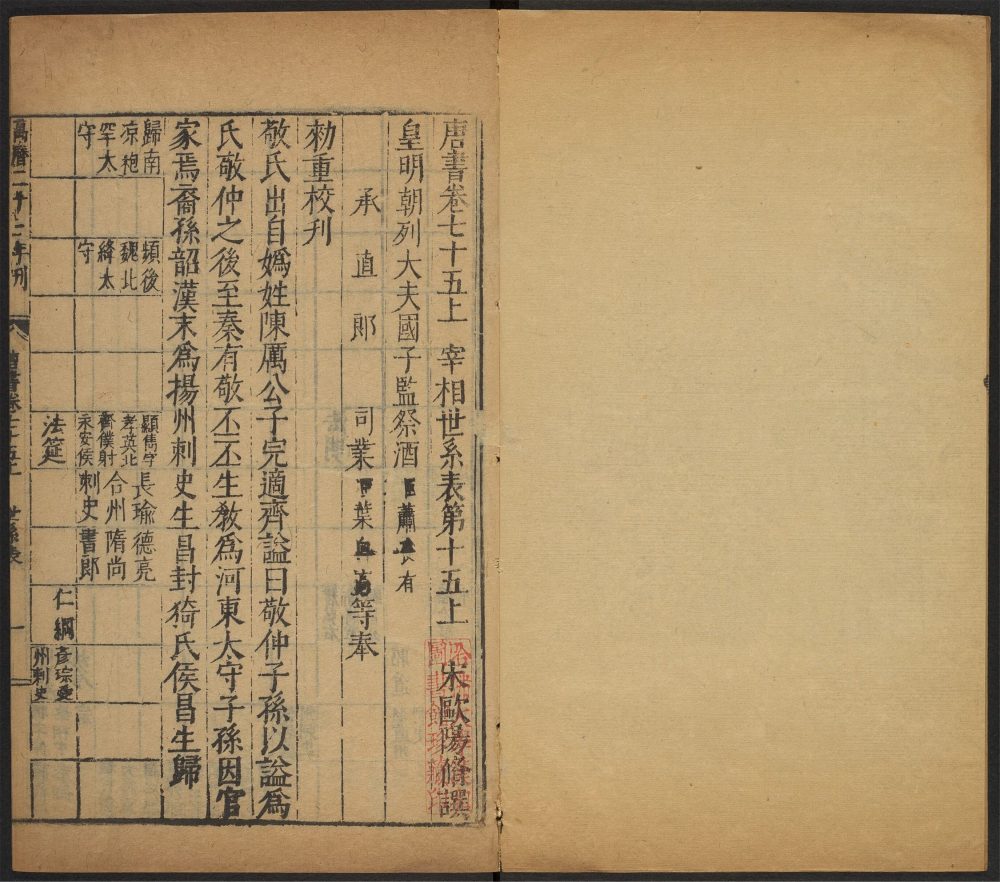 唐書卷七十五上 宰相世系表第十五上 宋歐陽脩譔
皇明朝列大夫國子監祭酒臣蕭良有
承直郎 司業臣葉向高等奉
勑重校刊
敬氏出自嬀姓陳厲公子完適齊謚曰敬仲子孫以謚爲
氏敬仲之後至秦有敬丕丕生敎爲河東太守子孫因官
家焉裔孫韶漢末爲揚州刺史生昌封猗氏侯昌生歸
歸南
凉枹
罕太
守
頻後
魏北
絳太
守
顯雋字
孝英北
齊僕射
永安侯
長瑜
合州
刺史
德亮
隋尚
書郎
法筵
仁綱
彥琮
州刺史
萬曆二十年刊
唐書卷七十五上 世系表 一